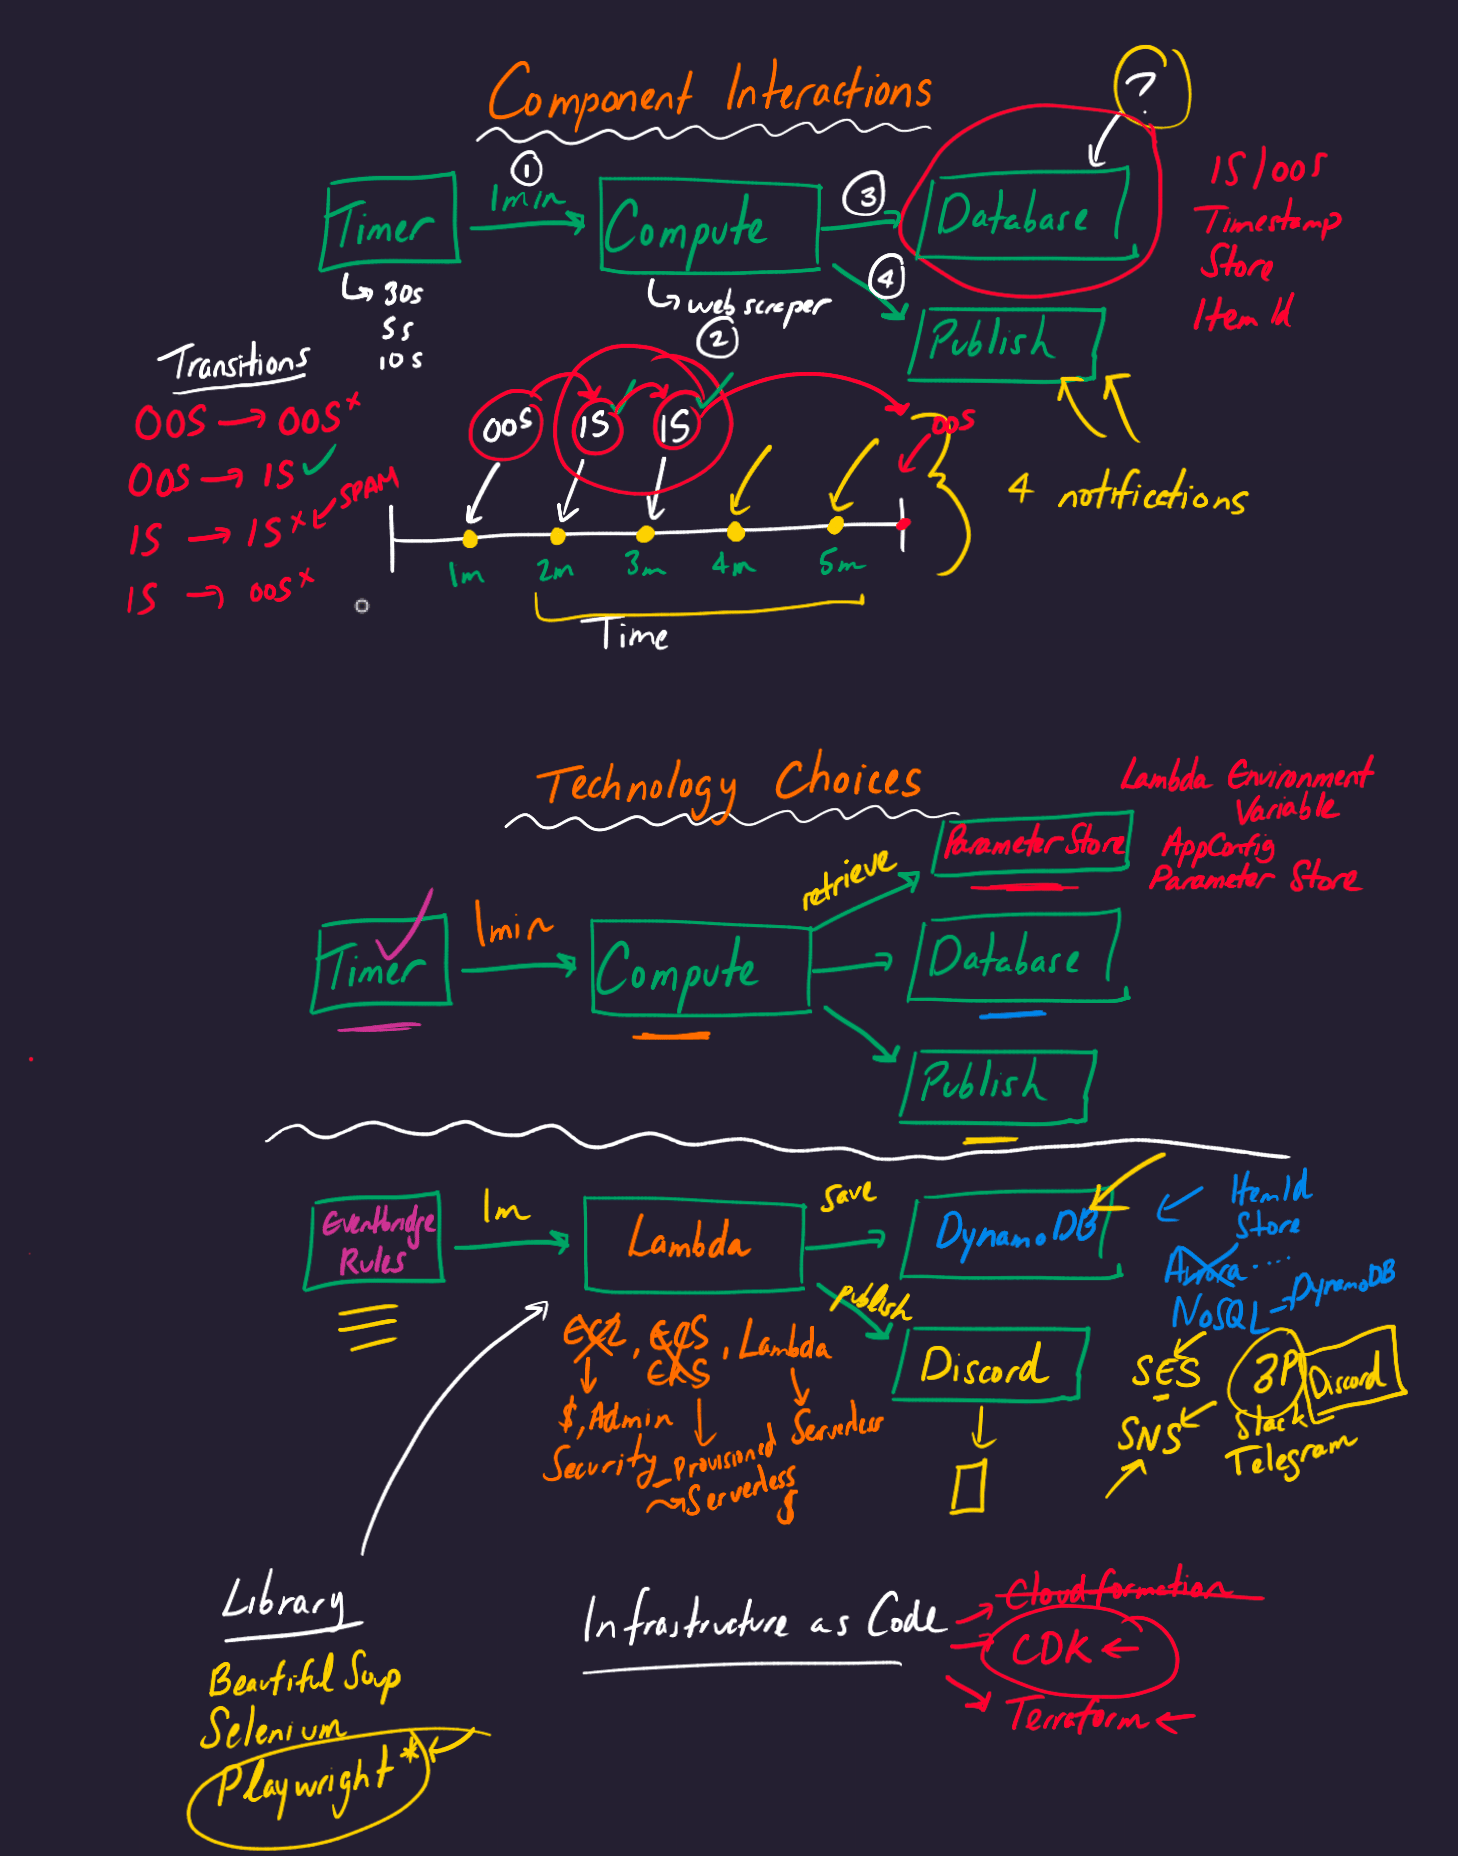 Component Interactions
?
1
1min
Timer
Compute
3
Database
4
Publish
IS/OOS
Timestamp
Store
Item Id
↳ 30s
5s
10s
↳ web scraper
2
Transitions
OOS → OOS x
OOS → IS ✓
IS → IS x ← SPAM
IS → OOS x
OOS
IS
IS
OOS
4 notifications
1m
2m
3m
4m
5m
Time
Technology Choices
Lambda Environment
Variable
AppConfig
Parameter Store
Parameter Store
retrieve
1min
Timer
Compute
Database
Publish
Eventbridge
Rules
1m
Lambda
save
DynamoDB
publish
Discord
ItemId
Store
Aurora ....
NoSQL - DynamoDB
SES
SNS
3P
Discord
Slack
Telegram
EC2, ECS, Lambda
EKS
$, Admin
Security
- Provisioned
Serverless
Serverless
$
Library
Beautiful Soup
Selenium
Playwright *
Infrastructure as Code
Cloudformation
CDK ←
Terraform ←